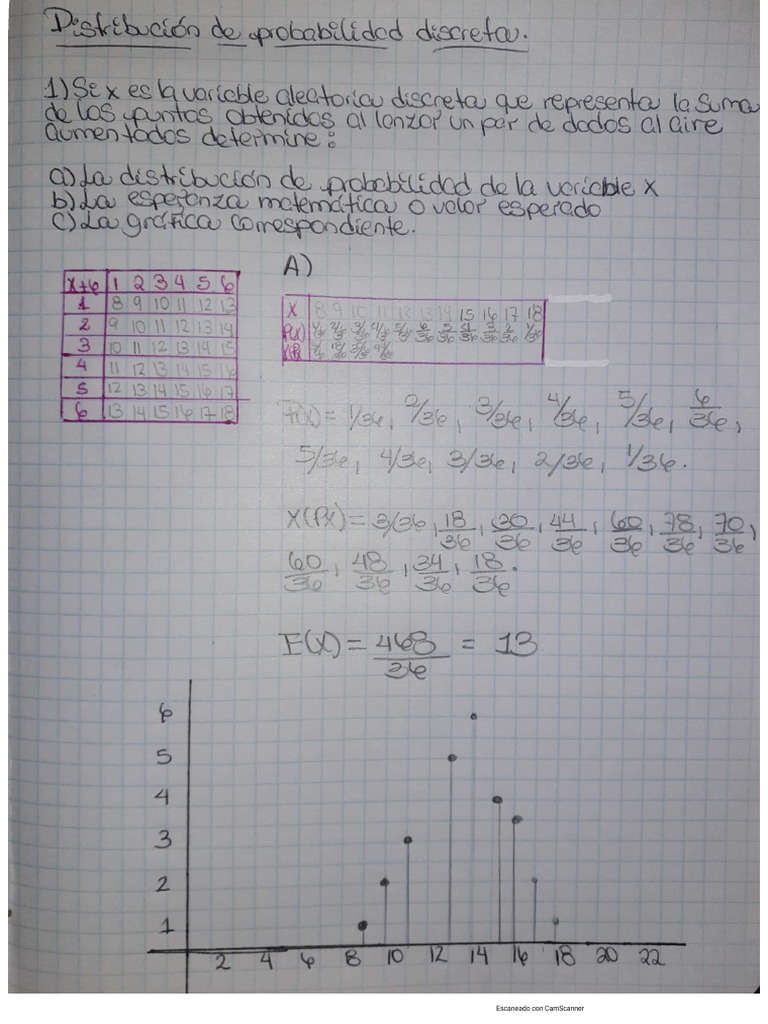 Distribución de probabilidad discreta.
1) Se x es la variable aleatoria discreta que representa la suma
de los puntos obtenidos al lanzar un par de dados al aire
aumentados determine:
a) La distribución de probabilidad de la variable x
b) La esperanza matemática o valor esperado
c) La gráfica correspondiente.
A)
x+6 1 2 3 4 5 6
1 8 9 10 11 12 13
2 9 10 11 12 13 14
3 10 11 12 13 14 15
4 11 12 13 14 15 16
5 12 13 14 15 16 17
6 13 14 15 16 17 18
X 8 9 10 11 12 13 14 15 16 17 18
P(x) 1/36 2/36 3/36 4/36 5/36 6/36 5/36 4/36 3/36 2/36 1/36
P(x) = 1/36, 2/36, 3/36, 4/36, 5/36, 6/36,
5/36, 4/36, 3/36, 2/36, 1/36.
X(Px) = 3/36, 18/36, 30/36, 44/36, 60/36, 78/36, 70/36,
60/36, 48/36, 34/36, 18/36.
E(X) = 468/36 = 13
6
5
4
3
2
1
2 4 6 8 10 12 14 16 18 20 22
Escaneado con CamScanner